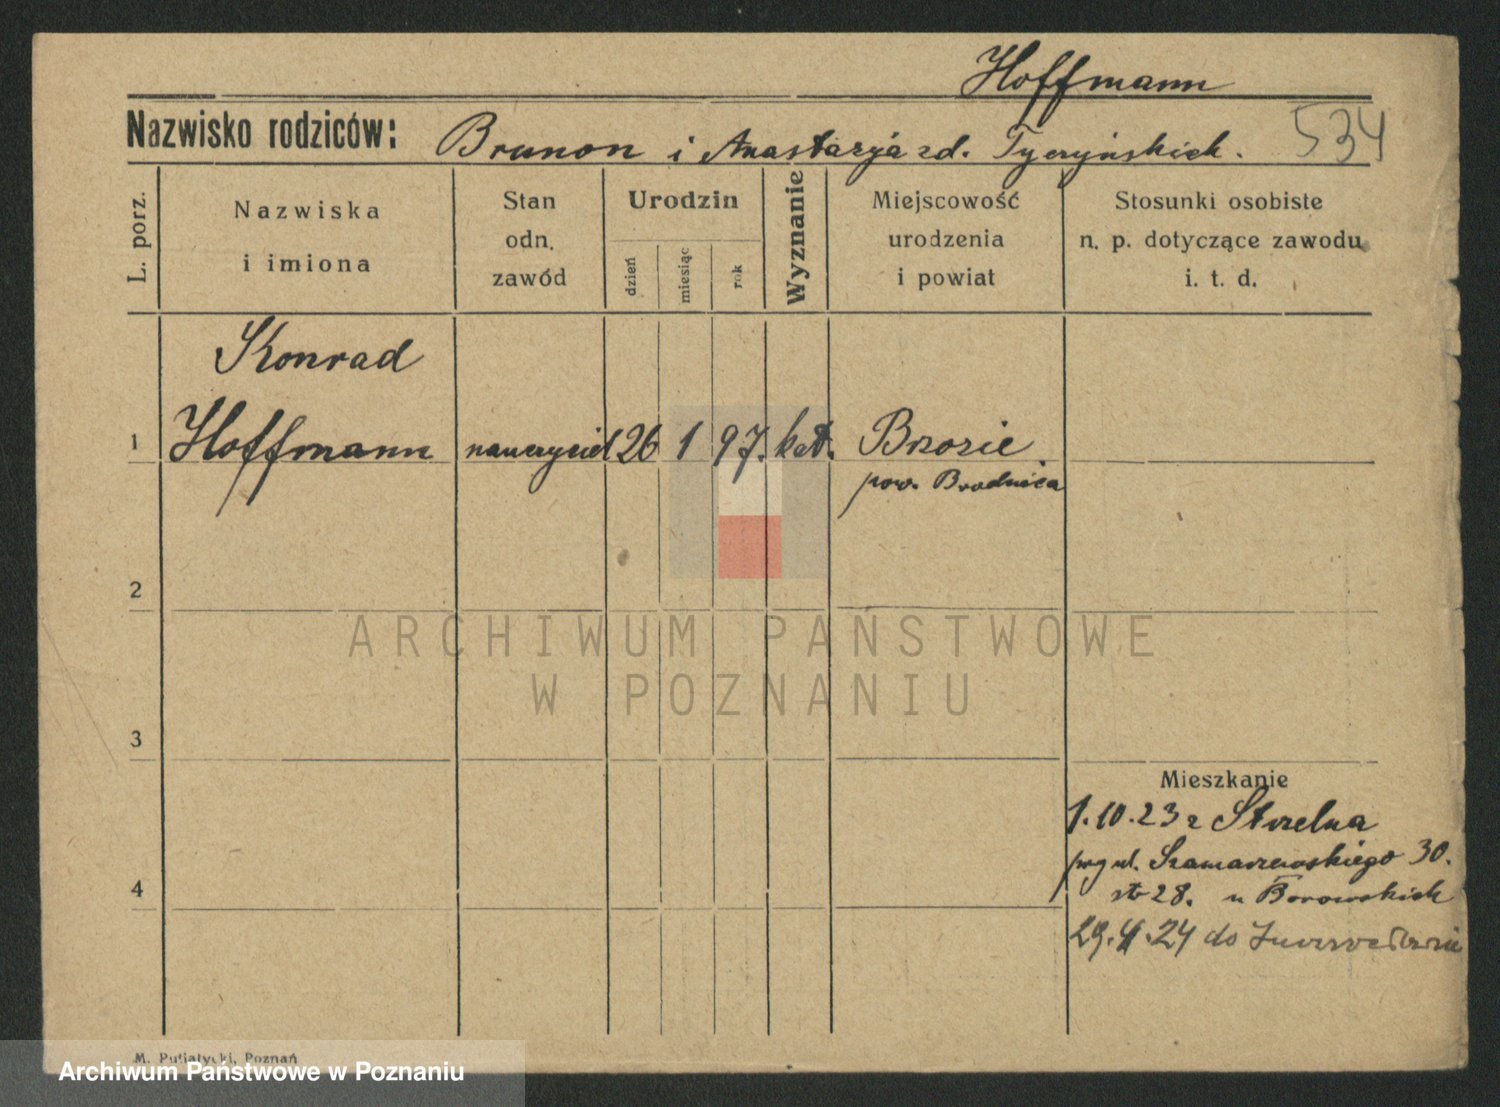 Hoffmann
Nazwisko rodziców: Brunon i Anastazja zd. Tyczyńskich. 534
L. porz.
Nazwiska
i imiona
Stan
odn.
zawód
Urodzin
dzień
miesiąc
rok
Wyznanie
Miejscowość
urodzenia
i powiat
Stosunki osobiste
n. p. dotyczące zawodu
i. t. d.
Konrad
1 Hoffmann nauczyciel 26 1 97. kat. Brzozie
pow. Brodnica
2
3
Mieszkanie
1.10.23 z Strzelna
ul. Szamarzewskiego 30.
4 28. u Borowskich
29.4.24 do
M. Putiatycki, Poznań
ARCHIWUM PAŃSTWOWE
W POZNANIU
Archiwum Państwowe w Poznaniu